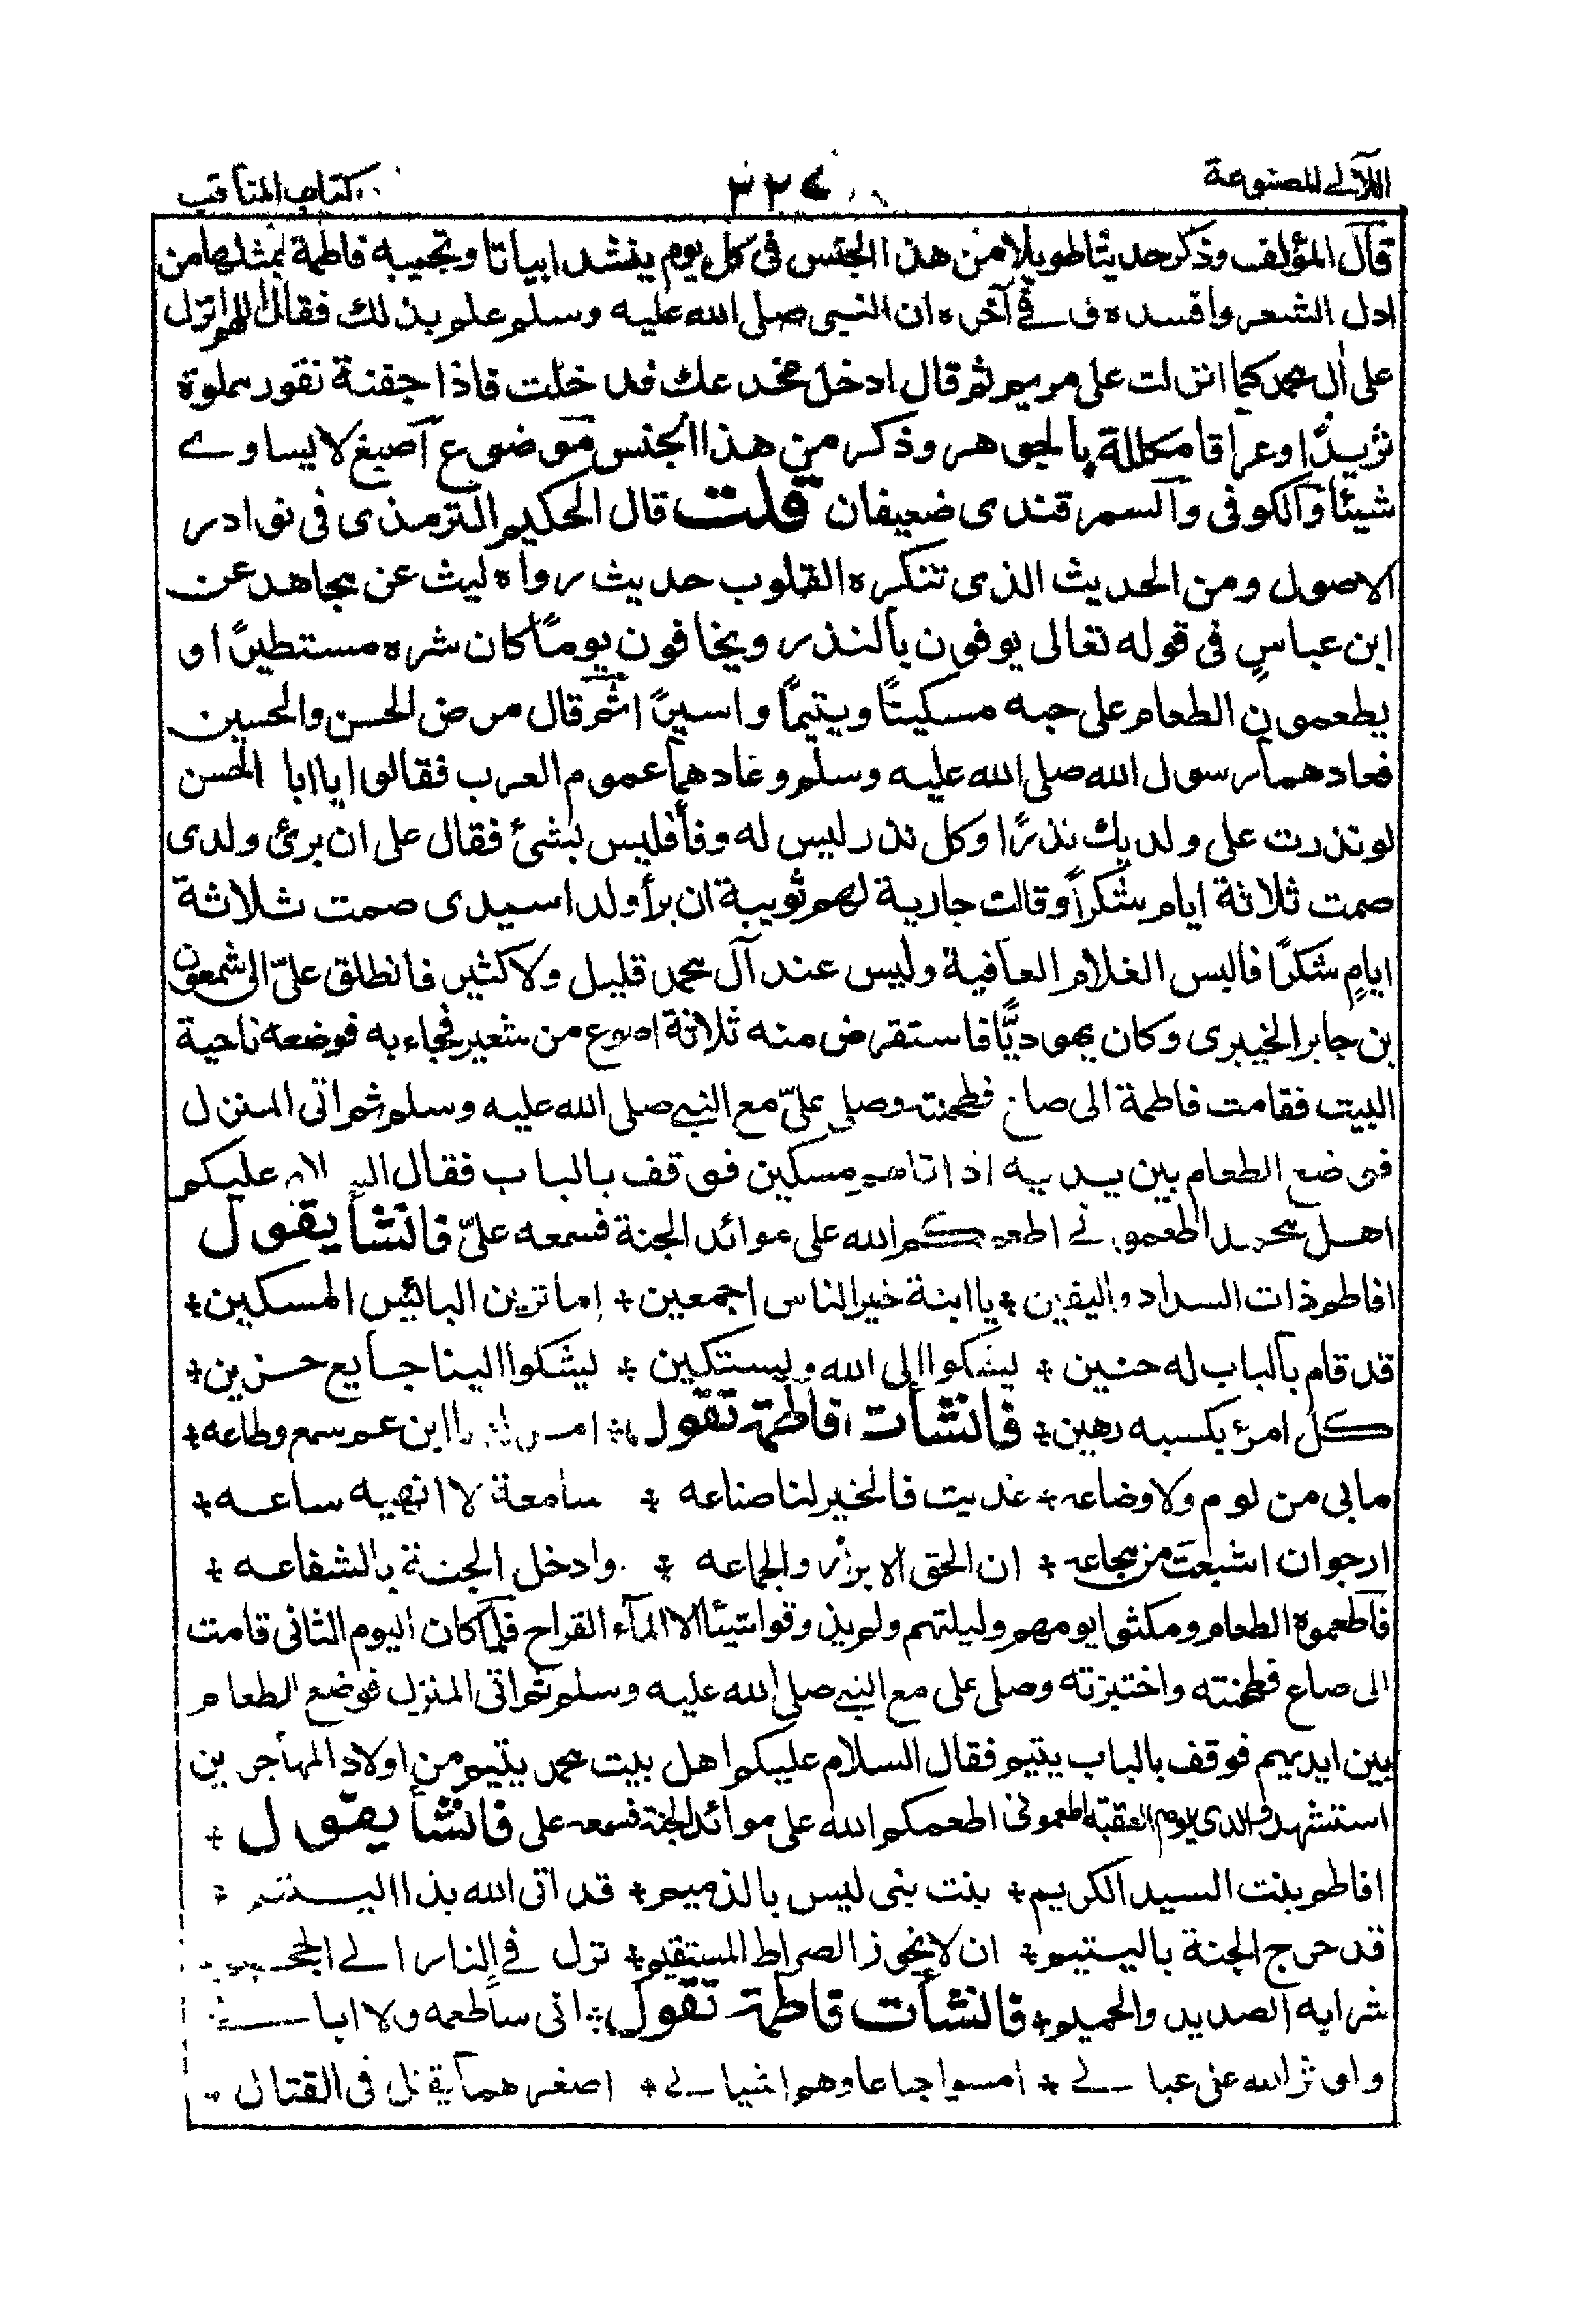 اللآلے المصنوعة ٣٢٤ كتاب المناقب
قال المؤلف وذكر حديثا طويلا من هذا الجنس فى كل يوم ينشد ابياتا وتجيبه فاطمة بمثلها من
ارذل الشعر وافسده وفے آخره ان النبى صلى الله عليه وسلم علم بذلك فقال اللهم انزل
على آل محمد كما انزلت على مريم ثم قال ادخل مخدعك فدخلت فاذا جفنة تفور مملوة
ثريدًا وعراقا مكللة بالجوهر وذكر من هذا الجنس موضوع آصبغ لا يساوے
شيئا والكوفى والسمرقندى ضعيفان قلت قال الحكيم الترمذى فى نوادر
الاصول ومن الحديث الذى تنكره القلوب حديث رواه ليث عن مجاهد عن
ابن عباسٍ فى قوله تعالى يوفون بالنذر ويخافون يومًا كان شره مستطيرًا و
يطعمون الطعام على حبه مسكينًا ويتيمًا واسيرًا ثم قال مرض الحسن والحسين
فعادهما رسول الله صلى الله عليه وسلم وعادهما عموم العرب فقالوا يا ابا الحسن
لو نذرت على ولديك نذرًا وكل نذر ليس له وفأ فليس بشئ فقال على ان برئ ولدى
صمت ثلاثة ايام شكراً وقالت جارية لهم ثويبة ان برأ ولدا سيدى صمت ثلاثة
ايامٍ شكرًا فالبس الغلام العافية وليس عند آل محمد قليل ولا كثير فانطلق علىّ الى شمعون
بن جابر الخيبرى وكان يهوديًّا فاستقرض منه ثلاثة اصوع من شعير فجاء به فوضعه ناحية
البيت فقامت فاطمة الى صاع فطحنته وصلى علىّ مع النبے صلى الله عليه وسلم ثم اتى المنزل
فوضع الطعام بين يديه اذ اتاهم مسكين فوقف بالباب فقال السلام عليكم
اهل محمد اطعمونے اطعمكم الله على موائد الجنة فسمعه علىّ فانشأ يقول
افاطم ذات السداد واليقين ÷ يا ابنة خير الناس اجمعين ÷ اما ترين البائس المسكين ÷
قد قام بالباب له حنين ÷ يشكوا الى الله ويستكين ÷ يشكوا الينا جايع حزين ÷
كل امرئ بكسبه رهين ÷ فانشأت فاطمة تقول ÷ ابن عم سمع وطاعه ÷
مابى من لوم ولا وضاعه ÷ غديت فالخير لنا صناعه ÷ سامعة لا انهيه ساعه ÷
ارجو ان اشبعت من مجاعه ÷ ان الحق الابرار والجماعه ÷ وادخل الجنة بالشفاعه ÷
فاطعموه الطعام ومكثوا يومهم وليلتهم ولم يذوقوا شيئا الا المآء القراح فلما كان اليوم الثانى قامت
الى صاع فطحنته واختبزته وصلى على مع النبے صلى الله عليه وسلم ثم اتى المنزل فوضع الطعام
بين ايديهم فوقف بالباب يتيم فقال السلام عليكم اهل بيت محمد يتيم من اولاد المهاجرين
استشهد والدى يوم العقبة اطعمونى اطعمكم الله على موائد الجنة فسمعه على فانشأ يقول ÷
افاطم بنت السيد الكريم ÷ بنت بنى ليس بالذميم ÷ قد اتى الله بذا اليتيم ÷
قد حرج الجنة باليتيم ÷ ان لا يجوز الصراط المستقيم ÷ نزل فے النار الے الجحيم
شرابه الصديد والحميم ÷ فانشأت فاطمة تقول ÷ انى ساطعمه ولا ابالے
واوثر الله على عيالے ÷ امسوا جياعا وهم اشبالے ÷ اصغرهما يقتل فى القتال